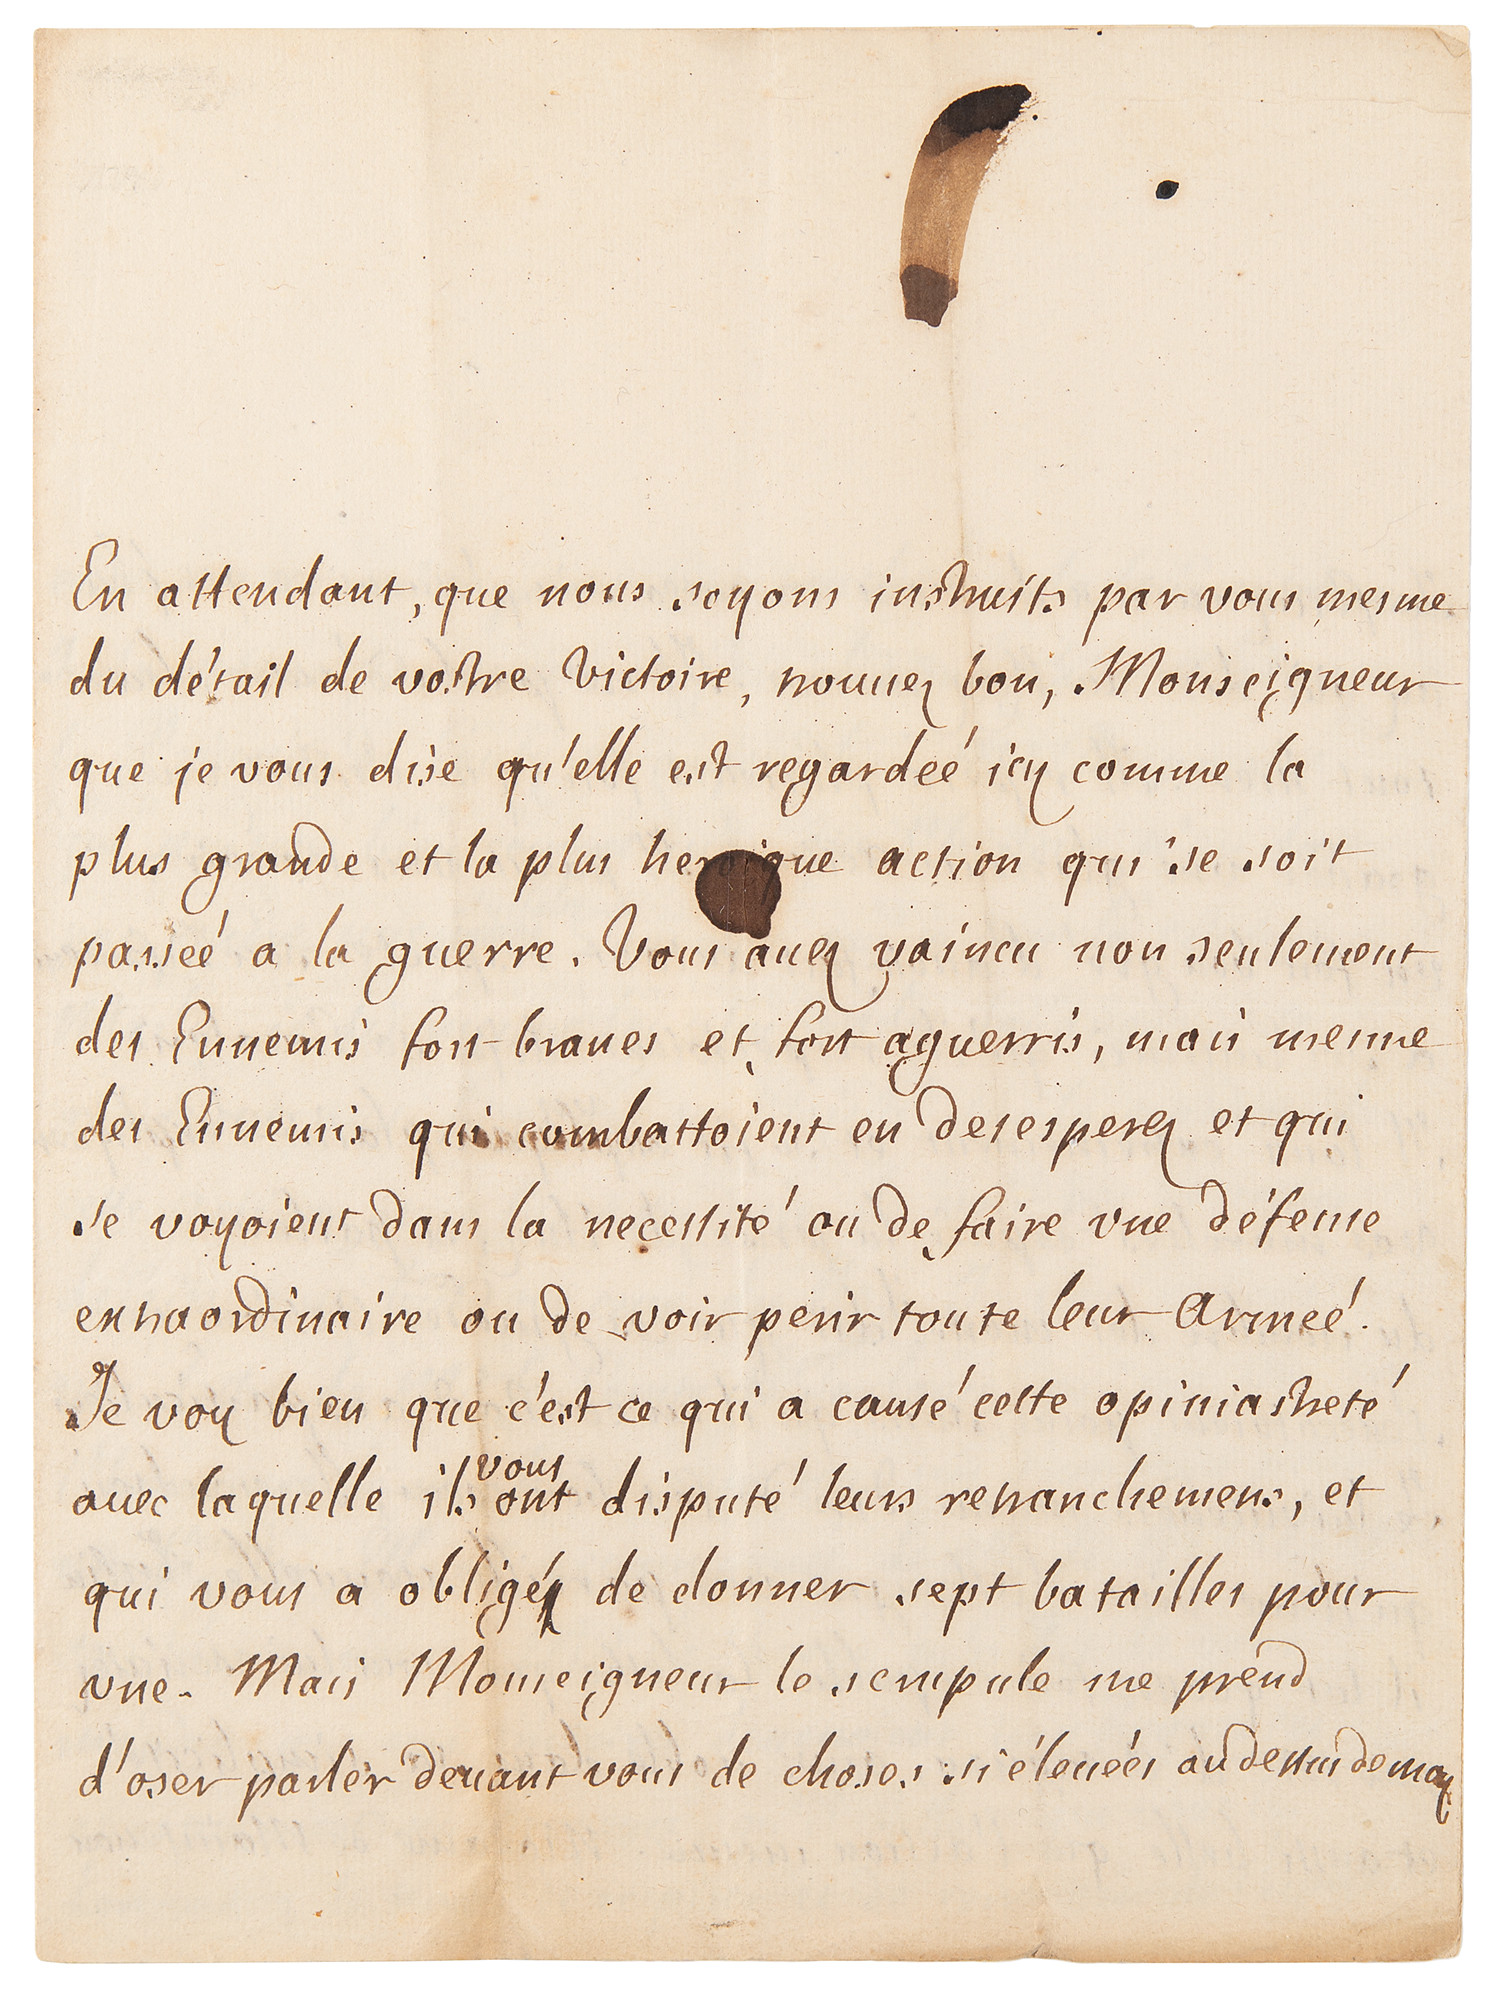 En attendant, que nous soyons instruits par vous mesme
du détail de vostre Victoire, trouuez bon, Monseigneur
que je vous dise qu'elle est regardeé icy comme la
plus grande et la plus heroique action qui se soit
passeé a la guerre. Vous auez vaincu non seulement
des Ennemis fort braues et fort aguerris, mais mesme
des Ennemis qui combattoient en desesperez et qui
se voyoient dans la necessité ou de faire vne défense
extraordinaire ou de voir perir toute leur Armeé.
Je voy bien que c'est ce qui a causé cette opiniastreté
auec laquelle ils vous ont disputé leurs retranchemens, et
qui vous a obligéz de donner sept batailles pour
vne. Mais Monseigneur le scrupule me prend
d'oser parler deuant vous de choses si éleuées au dessus de moy